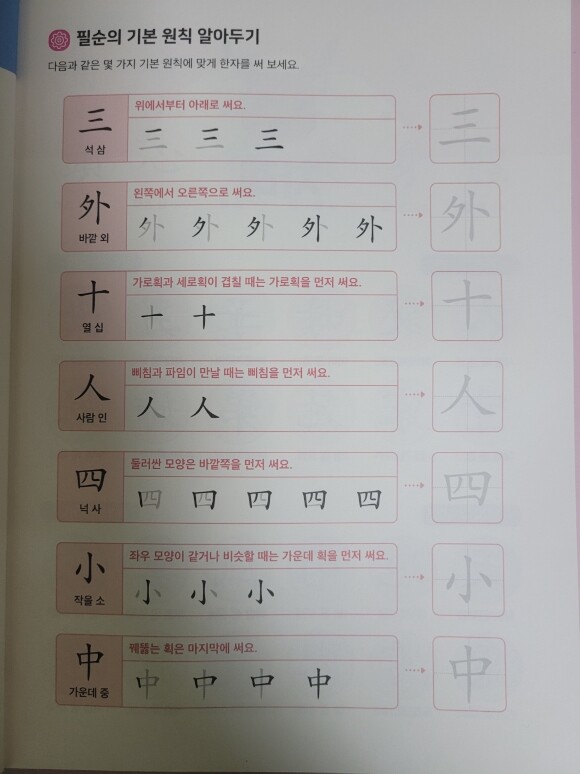 필순의 기본 원칙 알아두기
다음과 같은 몇 가지 기본 원칙에 맞게 한자를 써 보세요.
三
석 삼
위에서부터 아래로 써요.
三 三 三
三
外
바깥 외
왼쪽에서 오른쪽으로 써요.
外 外 外 外 外
外
十
열 십
가로획과 세로획이 겹칠 때는 가로획을 먼저 써요.
十 十
十
人
사람 인
삐침과 파임이 만날 때는 삐침을 먼저 써요.
人 人
人
四
넉 사
둘러싼 모양은 바깥쪽을 먼저 써요.
四 四 四 四 四
四
小
작을 소
좌우 모양이 같거나 비슷할 때는 가운데 획을 먼저 써요.
小 小 小
小
中
가운데 중
꿰뚫는 획은 마지막에 써요.
中 中 中 中
中